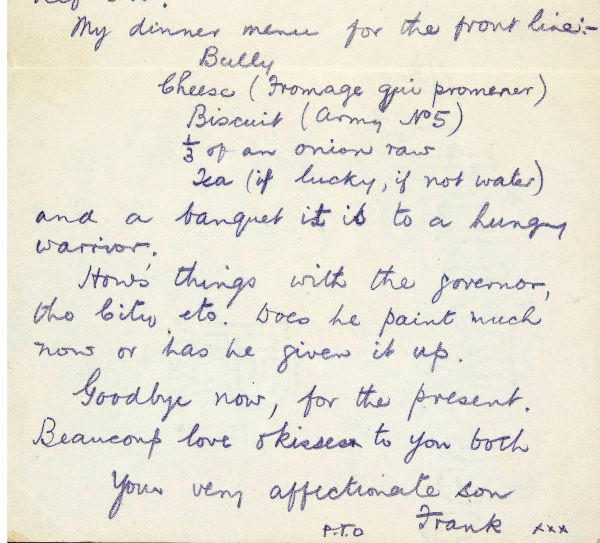 My dinner menu for the front line:-
Bully
Cheese (Fromage qui promener)
Biscuit (Army No 5)
1/3 of an onion raw
Tea (if lucky, if not water)
and a banquet it is to a hungry
warrior.
How's things with the governor,
the City etc. Does he paint much
now or has he given it up.
Goodbye now, for the present.
Beaucoup love & kisses to you both
Your very affectionate son
Frank xxx
P.T.O